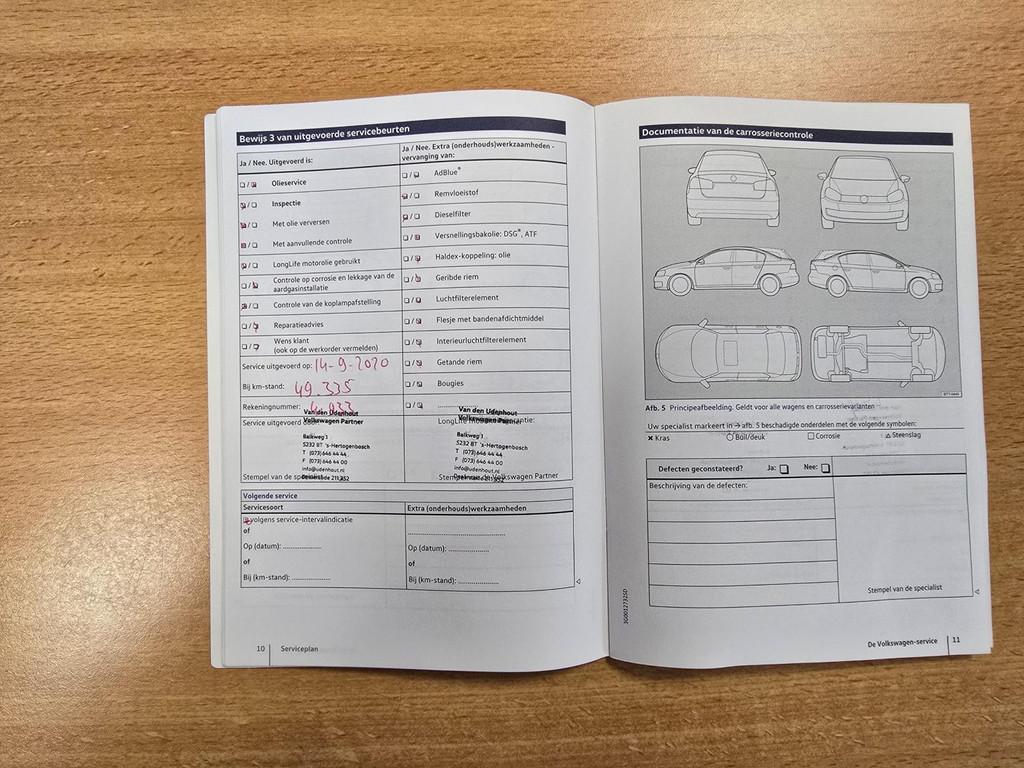 Bewijs 3 van uitgevoerde servicebeurten
Ja / Nee. Uitgevoerd is:
Olieservice
Inspectie
Met olie verversen
Met aanvullende controle
LongLife motorolie gebruikt
Controle op corrosie en lekkage van de
aardgasinstallatie
Controle van de koplampafstelling
Reparatieadvies
Wens klant
(ook op de werkorder vermelden)
Service uitgevoerd op: 14-9-2020
Bij km-stand: 49.335
Rekeningnummer:
Service uitgevoerd
Van den Udenhout
Volkswagen Partner
Balkweg 1
5232 BT 's-Hertogenbosch
T (073) 646 44 44
F (073) 646 44 00
info@udenhout.nl
Stempel van de
Ja / Nee. Extra (onderhouds)werkzaamheden -
vervanging van:
AdBlue®
Remvloeistof
Dieselfilter
Versnellingsbakolie: DSG®, ATF
Haldex-koppeling: olie
Geribde riem
Luchtfilterelement
Flesje met bandenafdichtmiddel
Interieurluchtfilterelement
Getande riem
Bougies
Van den Udenhout
Volkswagen Partner
Balkweg 1
5232 BT 's-Hertogenbosch
T (073) 646 44 44
F (073) 646 44 00
info@udenhout.nl
Volkswagen Partner
Volgende service
Servicesoort
volgens service-intervalindicatie
of
Op (datum): ....................
of
Bij (km-stand): ....................
Extra (onderhouds)werkzaamheden
Op (datum): ....................
of
Bij (km-stand): ....................
10 Serviceplan
Documentatie van de carrosseriecontrole
Afb. 5 Principeafbeelding. Geldt voor alle wagens en carrosserievarianten
Uw specialist markeert in → afb. 5 beschadigde onderdelen met de volgende symbolen:
× Kras ○ Buil/deuk □ Corrosie △ Steenslag
Defecten geconstateerd? Ja: □ Nee: □
Beschrijving van de defecten:
Stempel van de specialist
3G0012732SD
De Volkswagen-service 11